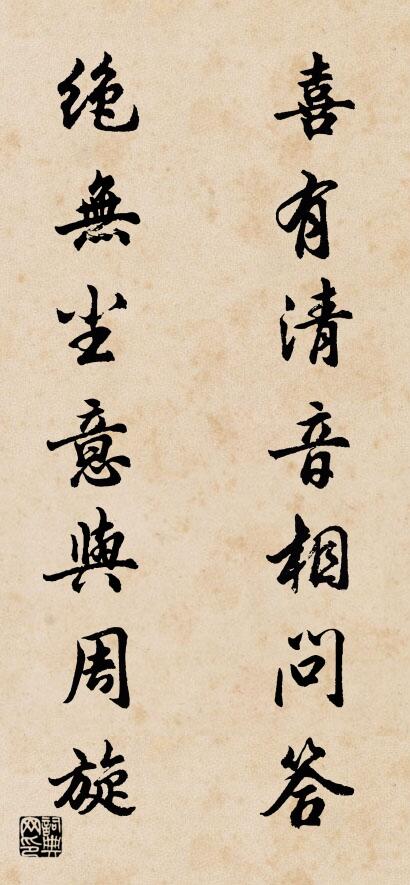 喜有清音相問答
絶無尘意與周旋
詞典网印